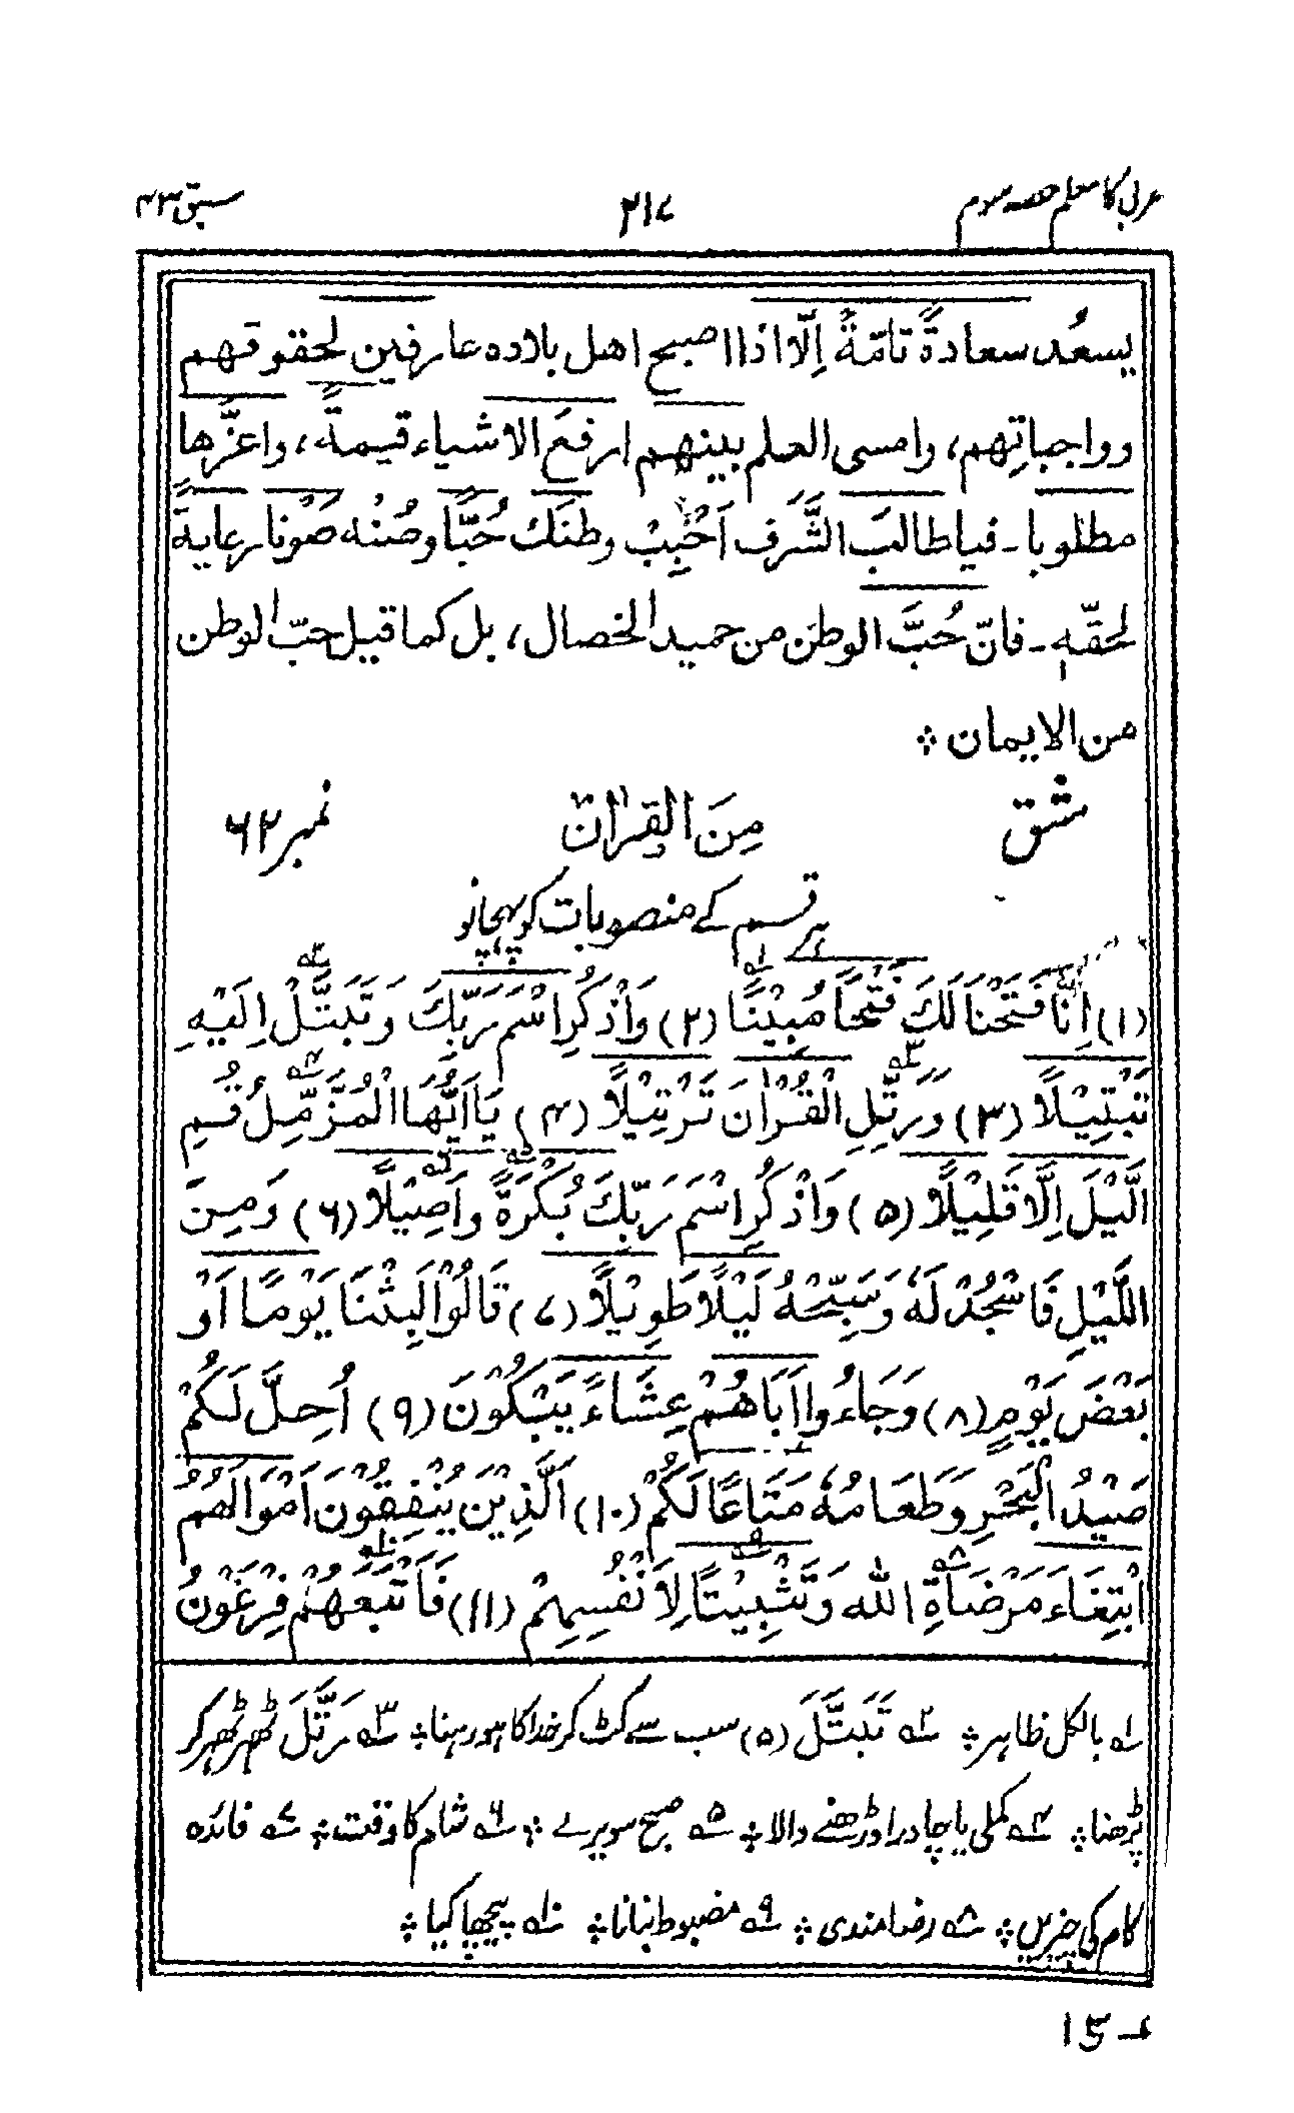 عربی کا معلم حصہ سوم ۲۱۷ سبق ۴۳
يسعُد سعادةً تامّةً إلّا اذا اصبح اهل بلاده عارفين لحقوقهم
وواجباتِهم، وامسى العلم بينهم ارفعَ الاشياء قيمةً، واعزَّها
مطلوبا ۔ فيا طالبَ الشَّرَف اَحْبِبْ وطنَك حُبًّا وصُنْه صَوْنا رعايةً
لحقّهٖ ۔ فانّ حُبَّ الوطن من حميد الخصال، بل كما قيل حبّ الوطن
من الايمان ÷
مشق مِنَ القرانْ نمبر ۶۲
ہر قسم کے منصوبات کو پہچانو
(۱) اِنَّا فَتَحْنَا لَكَ فَتْحًا مُبِيْنًا ۱؎ (۲) وَاذْكُرِ اسْمَ رَبِّكَ وَتَبَتَّلْ ۲؎ اِلَيْهِ
تَبْتِيْلًا (۳) وَرَتِّلِ ۳؎ الْقُرْاٰنَ تَرْتِيْلًا (۴) يَا اَيُّهَا الْمُزَّمِّلُ ۴؎ قُمِ
الَّيْلَ اِلَّا قَلِيْلًا (۵) وَاذْكُرِ اسْمَ رَبِّكَ بُكْرَةً ۵؎ وَاَصِيْلًا ۶؎ (۶) وَمِنَ
اللَّيْلِ فَاسْجُدْ لَهٗ وَسَبِّحْهُ لَيْلًا طَوِيْلًا (۷) قَالُوْا لَبِثْنَا يَوْمًا اَوْ
بَعْضَ يَوْمٍ (۸) وَجَاءُوا اَبَاهُمْ عِشَاءً يَبْكُوْنَ (۹) اُحِلَّ لَكُمْ
صَيْدُ الْبَحْرِ وَطَعَامُهٗ مَتَاعًا ۷؎ لَكُمْ (۱۰) اَلَّذِيْنَ يُنْفِقُوْنَ اَمْوَالَهُمُ
ابْتِغَاءَ مَرْضَاةِ ۸؎ اللّٰه وَتَثْبِيْتًا ۹؎ لِاَنْفُسِهِمْ (۱۱) فَاَتْبَعَهُمْ ۱۰؎ فِرْعَوْنُ
۱؎ بالکل ظاہر ÷ ۲؎ تَبَتَّلَ (۵) سب سے کٹ کر خدا کا ہو رہنا ÷ ۳؎ رَتَّلَ ٹھہر ٹھہر کر
پڑھنا ÷ ۴؎ کملی یا چادر اوڑھنے والا ÷ ۵؎ صبح سویرے ÷ ۶؎ شام کا وقت ÷ ۷؎ فائدہ
کام کی چیزیں ÷ ۸؎ رضامندی ÷ ۹؎ مضبوط بنانا ÷ ۱۰؎ پیچھا کیا ÷